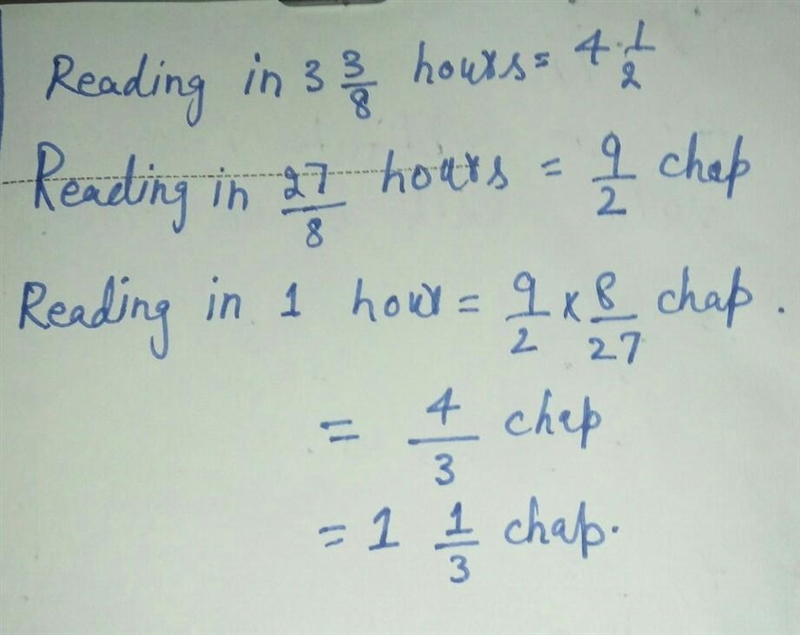 Reading in 3 3/8 hours = 4 1/2
Reading in 27/8 hours = 9/2 chap
Reading in 1 hour = 9/2 x 8/27 chap.
= 4/3 chap
= 1 1/3 chap.